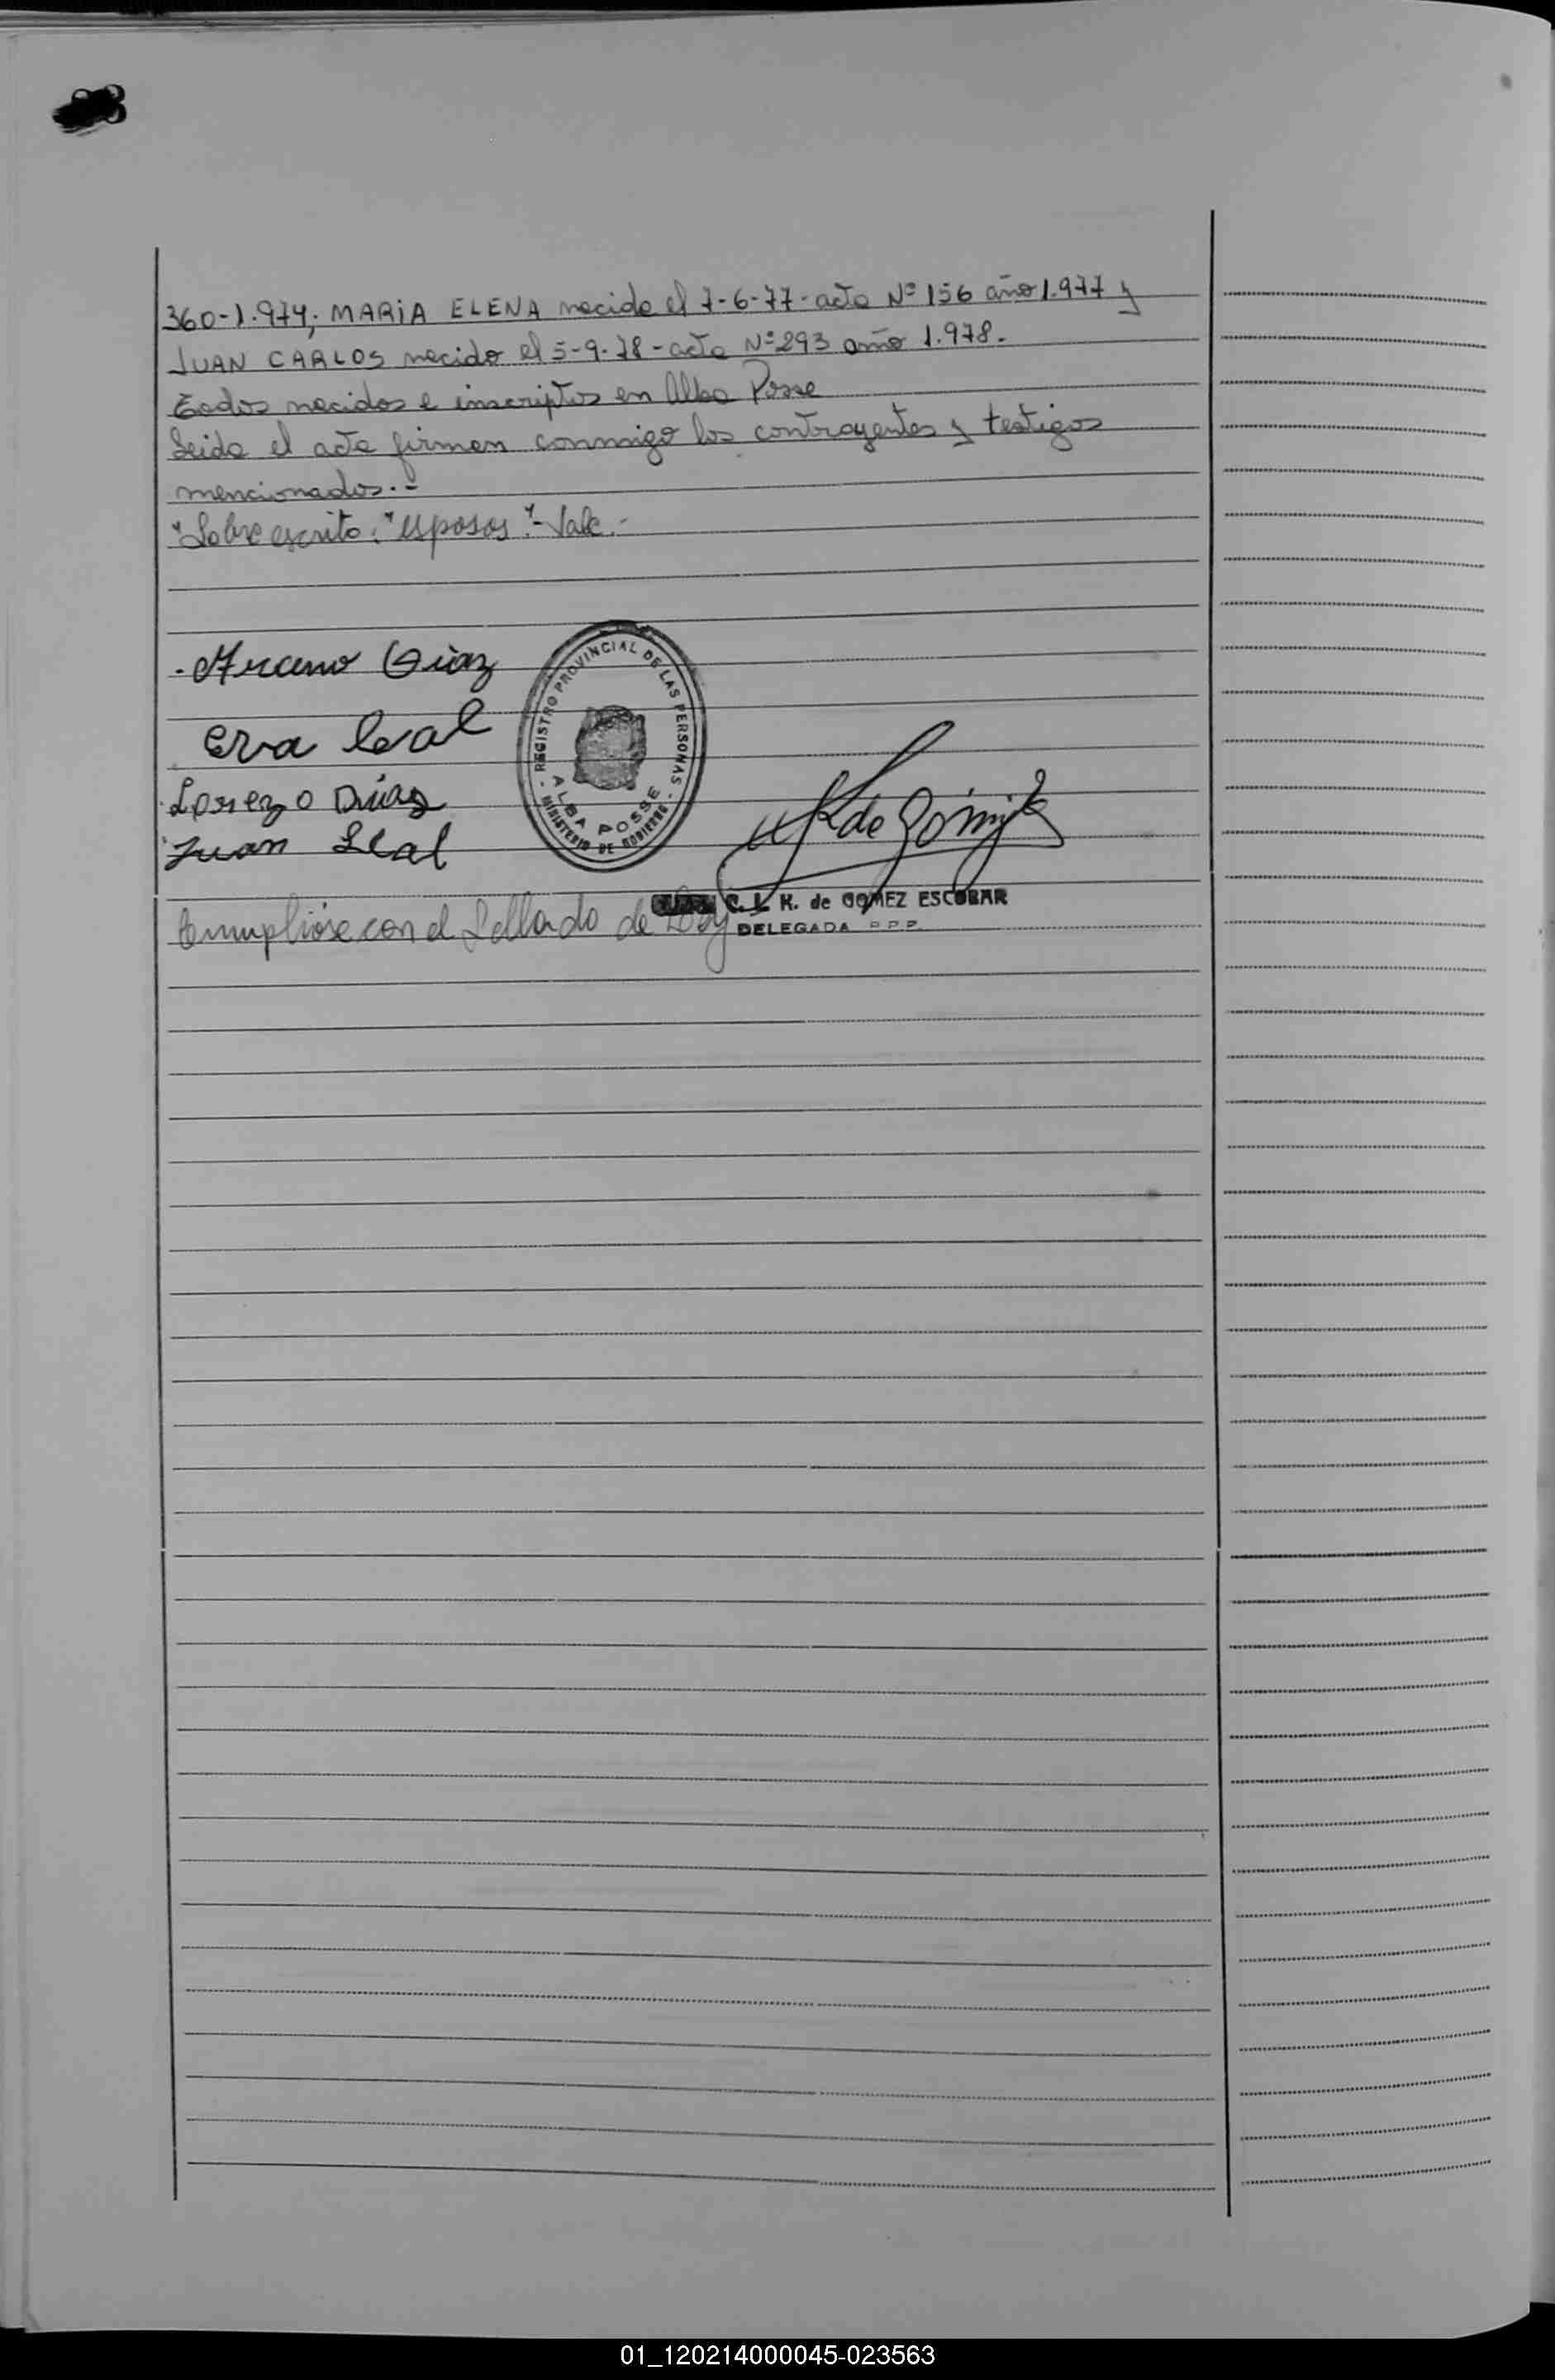 360-1.974; MARIA ELENA nacida el 7-6-77- acta Nº 156 año 1.977 y
JUAN CARLOS nacido el 5-9-78 - acta Nº 293 año 1.978.
Todos nacidos e inscriptos en Alba Posse
Leida el acta firman conmigo los contrayentes y testigos
mencionados.-
"Sobre escrito: "esposos".- Vale.-
Diaz
Eva Leal
Lorezo Diaz
Juan Leal
REGISTRO PROVINCIAL DE LAS PERSONAS
ALBA POSSE
MINISTERIO DE GOBIERNO
K de Gómez
C. L. K. de GOMEZ ESCOBAR
DELEGADA R P P
Cumplióse con el Sellado de Ley
01_120214000045-023563